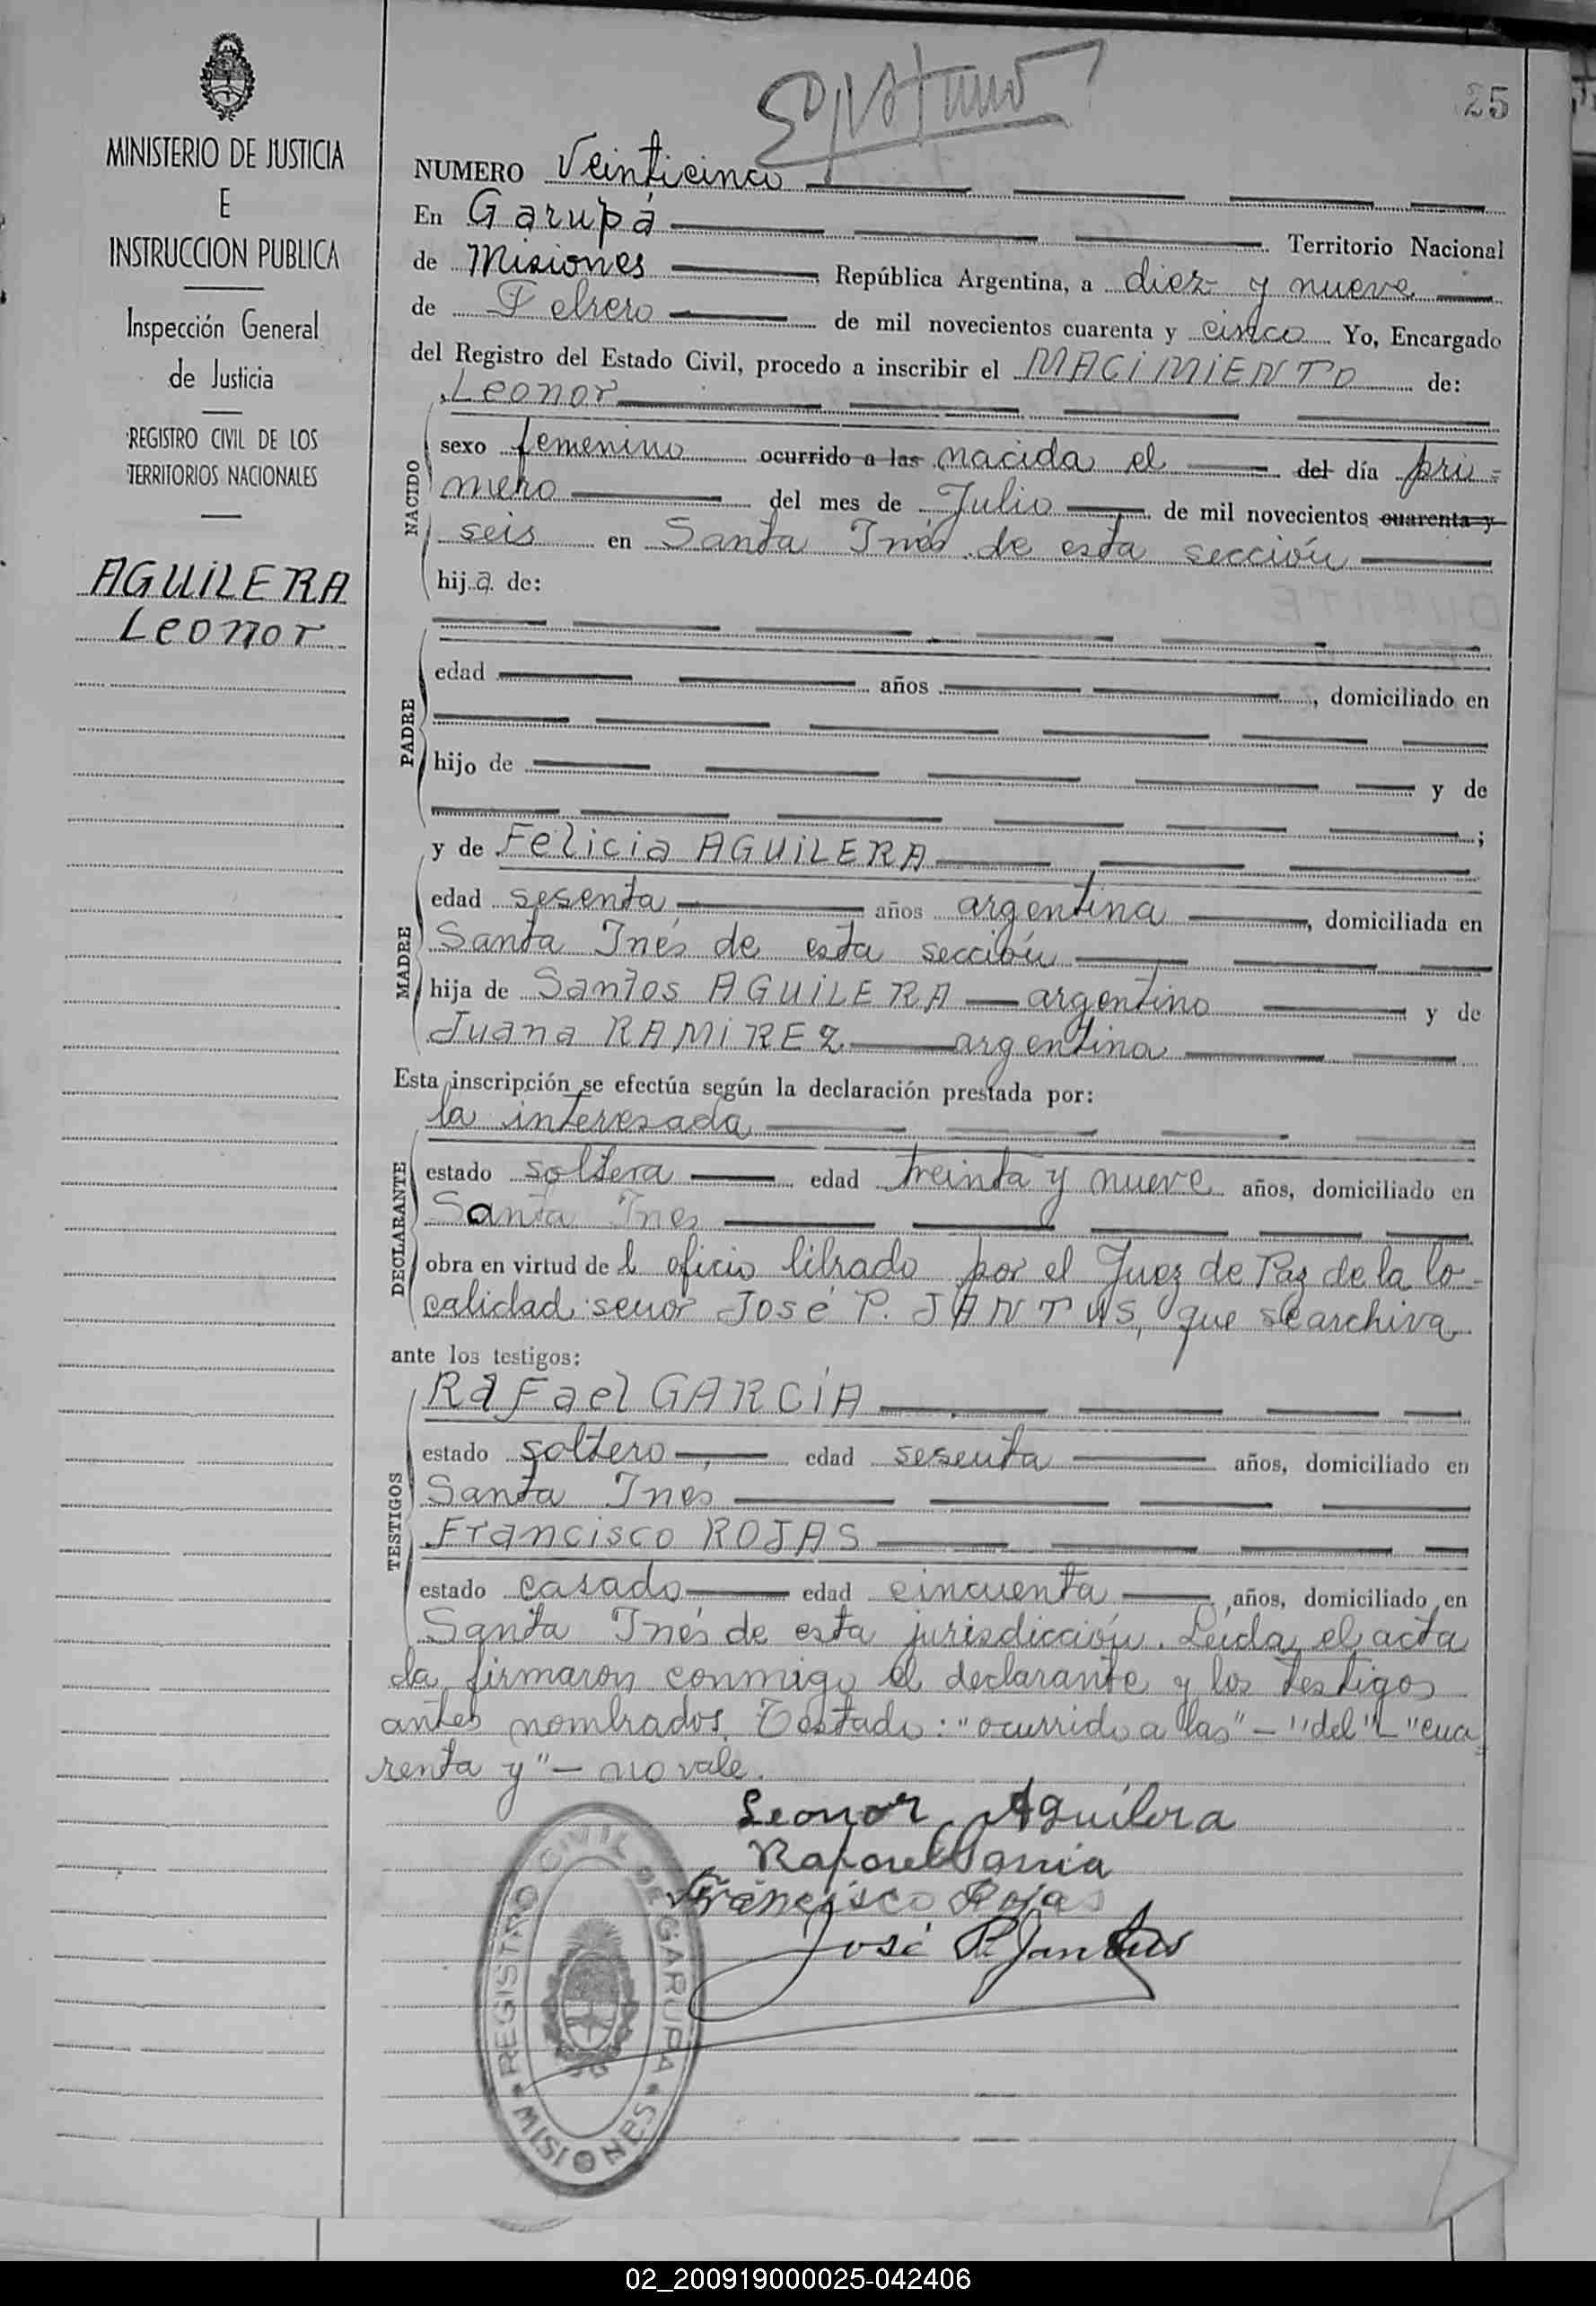 MINISTERIO DE JUSTICIA
E
INSTRUCCION PUBLICA
Inspección General
de Justicia
REGISTRO CIVIL DE LOS
TERRITORIOS NACIONALES
AGUILERA
Leonor
25
NUMERO Veinticinco
En Garupá Territorio Nacional
de Misiones República Argentina, a diez y nueve
de Febrero de mil novecientos cuarenta y cinco Yo, Encargado
del Registro del Estado Civil, procedo a inscribir el NACIMIENTO de:
Leonor
NACIDO
sexo femenino ocurrido a las nacida el del día pri=
mero del mes de Julio de mil novecientos cuarenta y
seis en Santa Inés de esta sección
hija de:
PADRE
edad años , domiciliado en
hijo de y de
;
MADRE
y de Felicia AGUILERA
edad sesenta años argentina , domiciliada en
Santa Inés de esta sección
hija de Santos AGUILERA argentino y de
Juana RAMIREZ argentina
Esta inscripción se efectúa según la declaración prestada por:
DECLARANTE
la interesada
estado soltera edad treinta y nueve años, domiciliado en
Santa Ines
obra en virtud de l oficio librado por el Juez de Paz de la lo=
calidad señor José P. JANTUS, que se archiva
ante los testigos:
TESTIGOS
Rafael GARCÍA
estado soltero edad sesenta años, domiciliado en
Santa Ines
Francisco ROJAS
estado casado edad cincuenta años, domiciliado en
Santa Inés de esta jurisdicción. Leida el acta
la firmaron conmigo el declarante y los testigos
antes nombrados. Testado: "ocurrido a las" - "del" - "cua=
renta y" - no vale.
Leonor Aguilera
Rafael Garcia
Francisco Rojas
José P. Jantus
REGISTRO CIVIL DE GARUPA
MISIONES
02_200919000025-042406